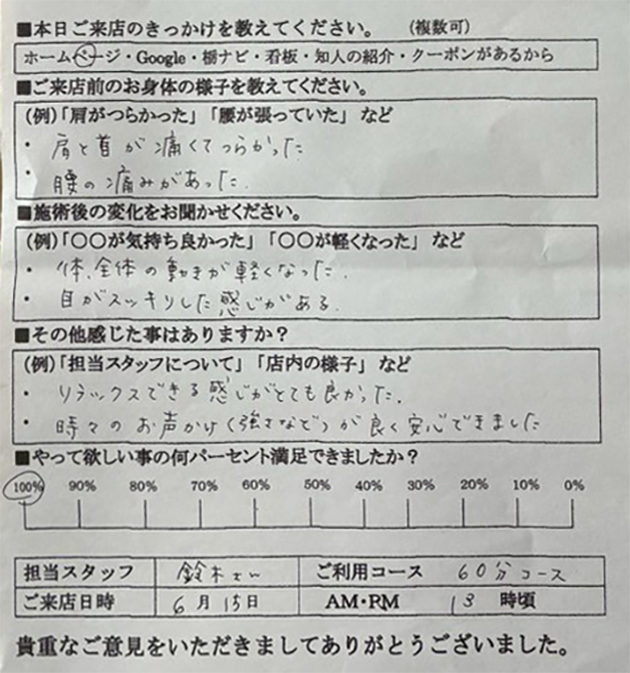 ■本日ご来店のきっかけを教えてください。 (複数可)
ホームページ・Google・栃ナビ・看板・知人の紹介・クーポンがあるから
■ご来店前のお身体の様子を教えてください。
(例)「肩がつらかった」「腰が張っていた」など
・肩と首が痛くてつらかった
・腰の痛みがあった.
■施術後の変化をお聞かせください。
(例)「〇〇が気持ち良かった」「〇〇が軽くなった」など
・体、全体の動きが軽くなった.
・目がスッキリした感じがある.
■その他感じた事はありますか?
(例)「担当スタッフについて」「店内の様子」など
・リラックスできる感じがとても良かった.
・時々のお声かけ(強さなど)が良く安心できました
■やって欲しい事の何パーセント満足できましたか?
100% 90% 80% 70% 60% 50% 40% 30% 20% 10% 0%
担当スタッフ 鈴木さん ご利用コース 60分コース
ご来店日時 6月15日 AM・PM 13時頃
貴重なご意見をいただきましてありがとうございました。